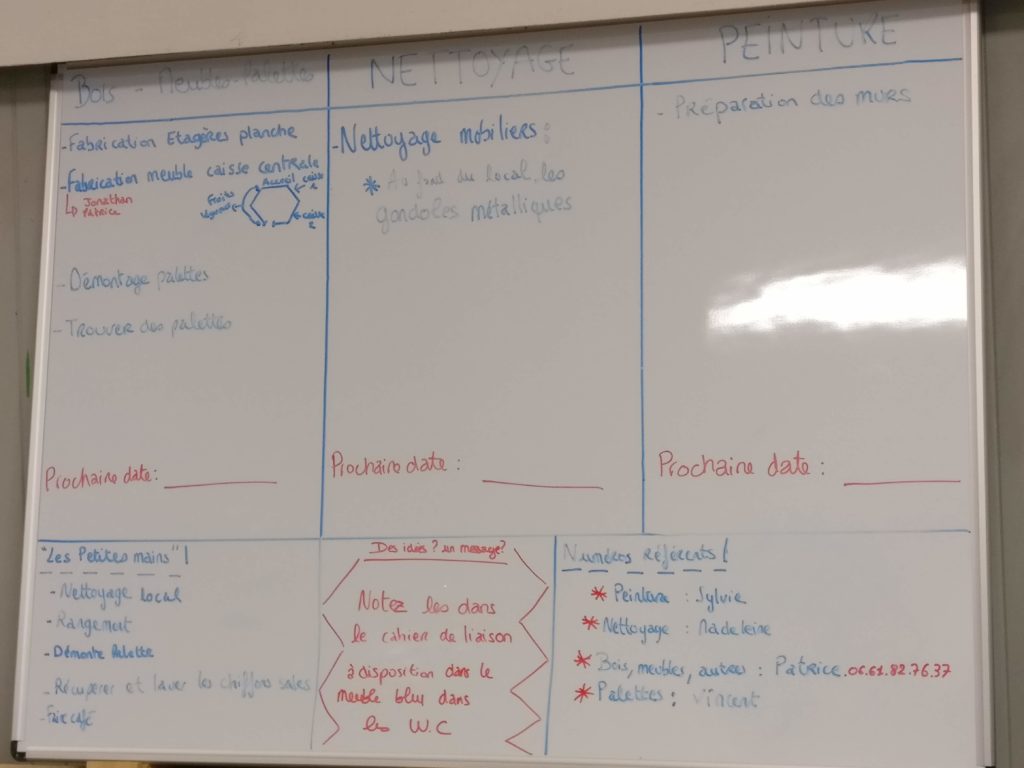 Bois - Meubles-Palettes
- Fabrication Etagères planche
- Fabrication meuble caisse centrale
Jonathan
Patrice
Accueil
caisse
1
Fruits
légumes
caisse
2
- Démontage palettes
- Trouver des palettes
Prochaine date :
NETTOYAGE
- Nettoyage mobiliers :
* Au fond du local, les
gondoles métalliques
Prochaine date :
PEINTURE
- Préparation des murs
Prochaine date :
"Les Petites mains" !
- Nettoyage local
- Rangement
- Démonte Palette
- Récupérer et laver les chiffons sales
- Faire café
Des idées ? un message ?
Notez les dans
le cahier de liaison
à disposition dans le
meuble bleu dans
les W.C
Numéros référents !
* Peinture : Sylvie
* Nettoyage : Madeleine
* Bois, meubles, autres : Patrice.06.61.82.76.37
* Palettes : Vincent